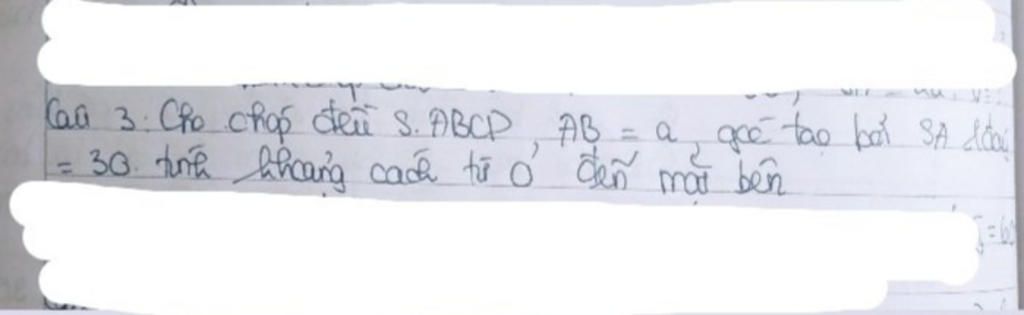 Câu 3: Cho chóp đều S.ABCD, AB = a, góc tạo bởi SA
= 30. tính khoảng cách từ O đến mặt bên